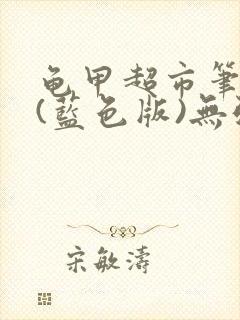 龟甲超市筆
(藍色版)無
宋敏濤